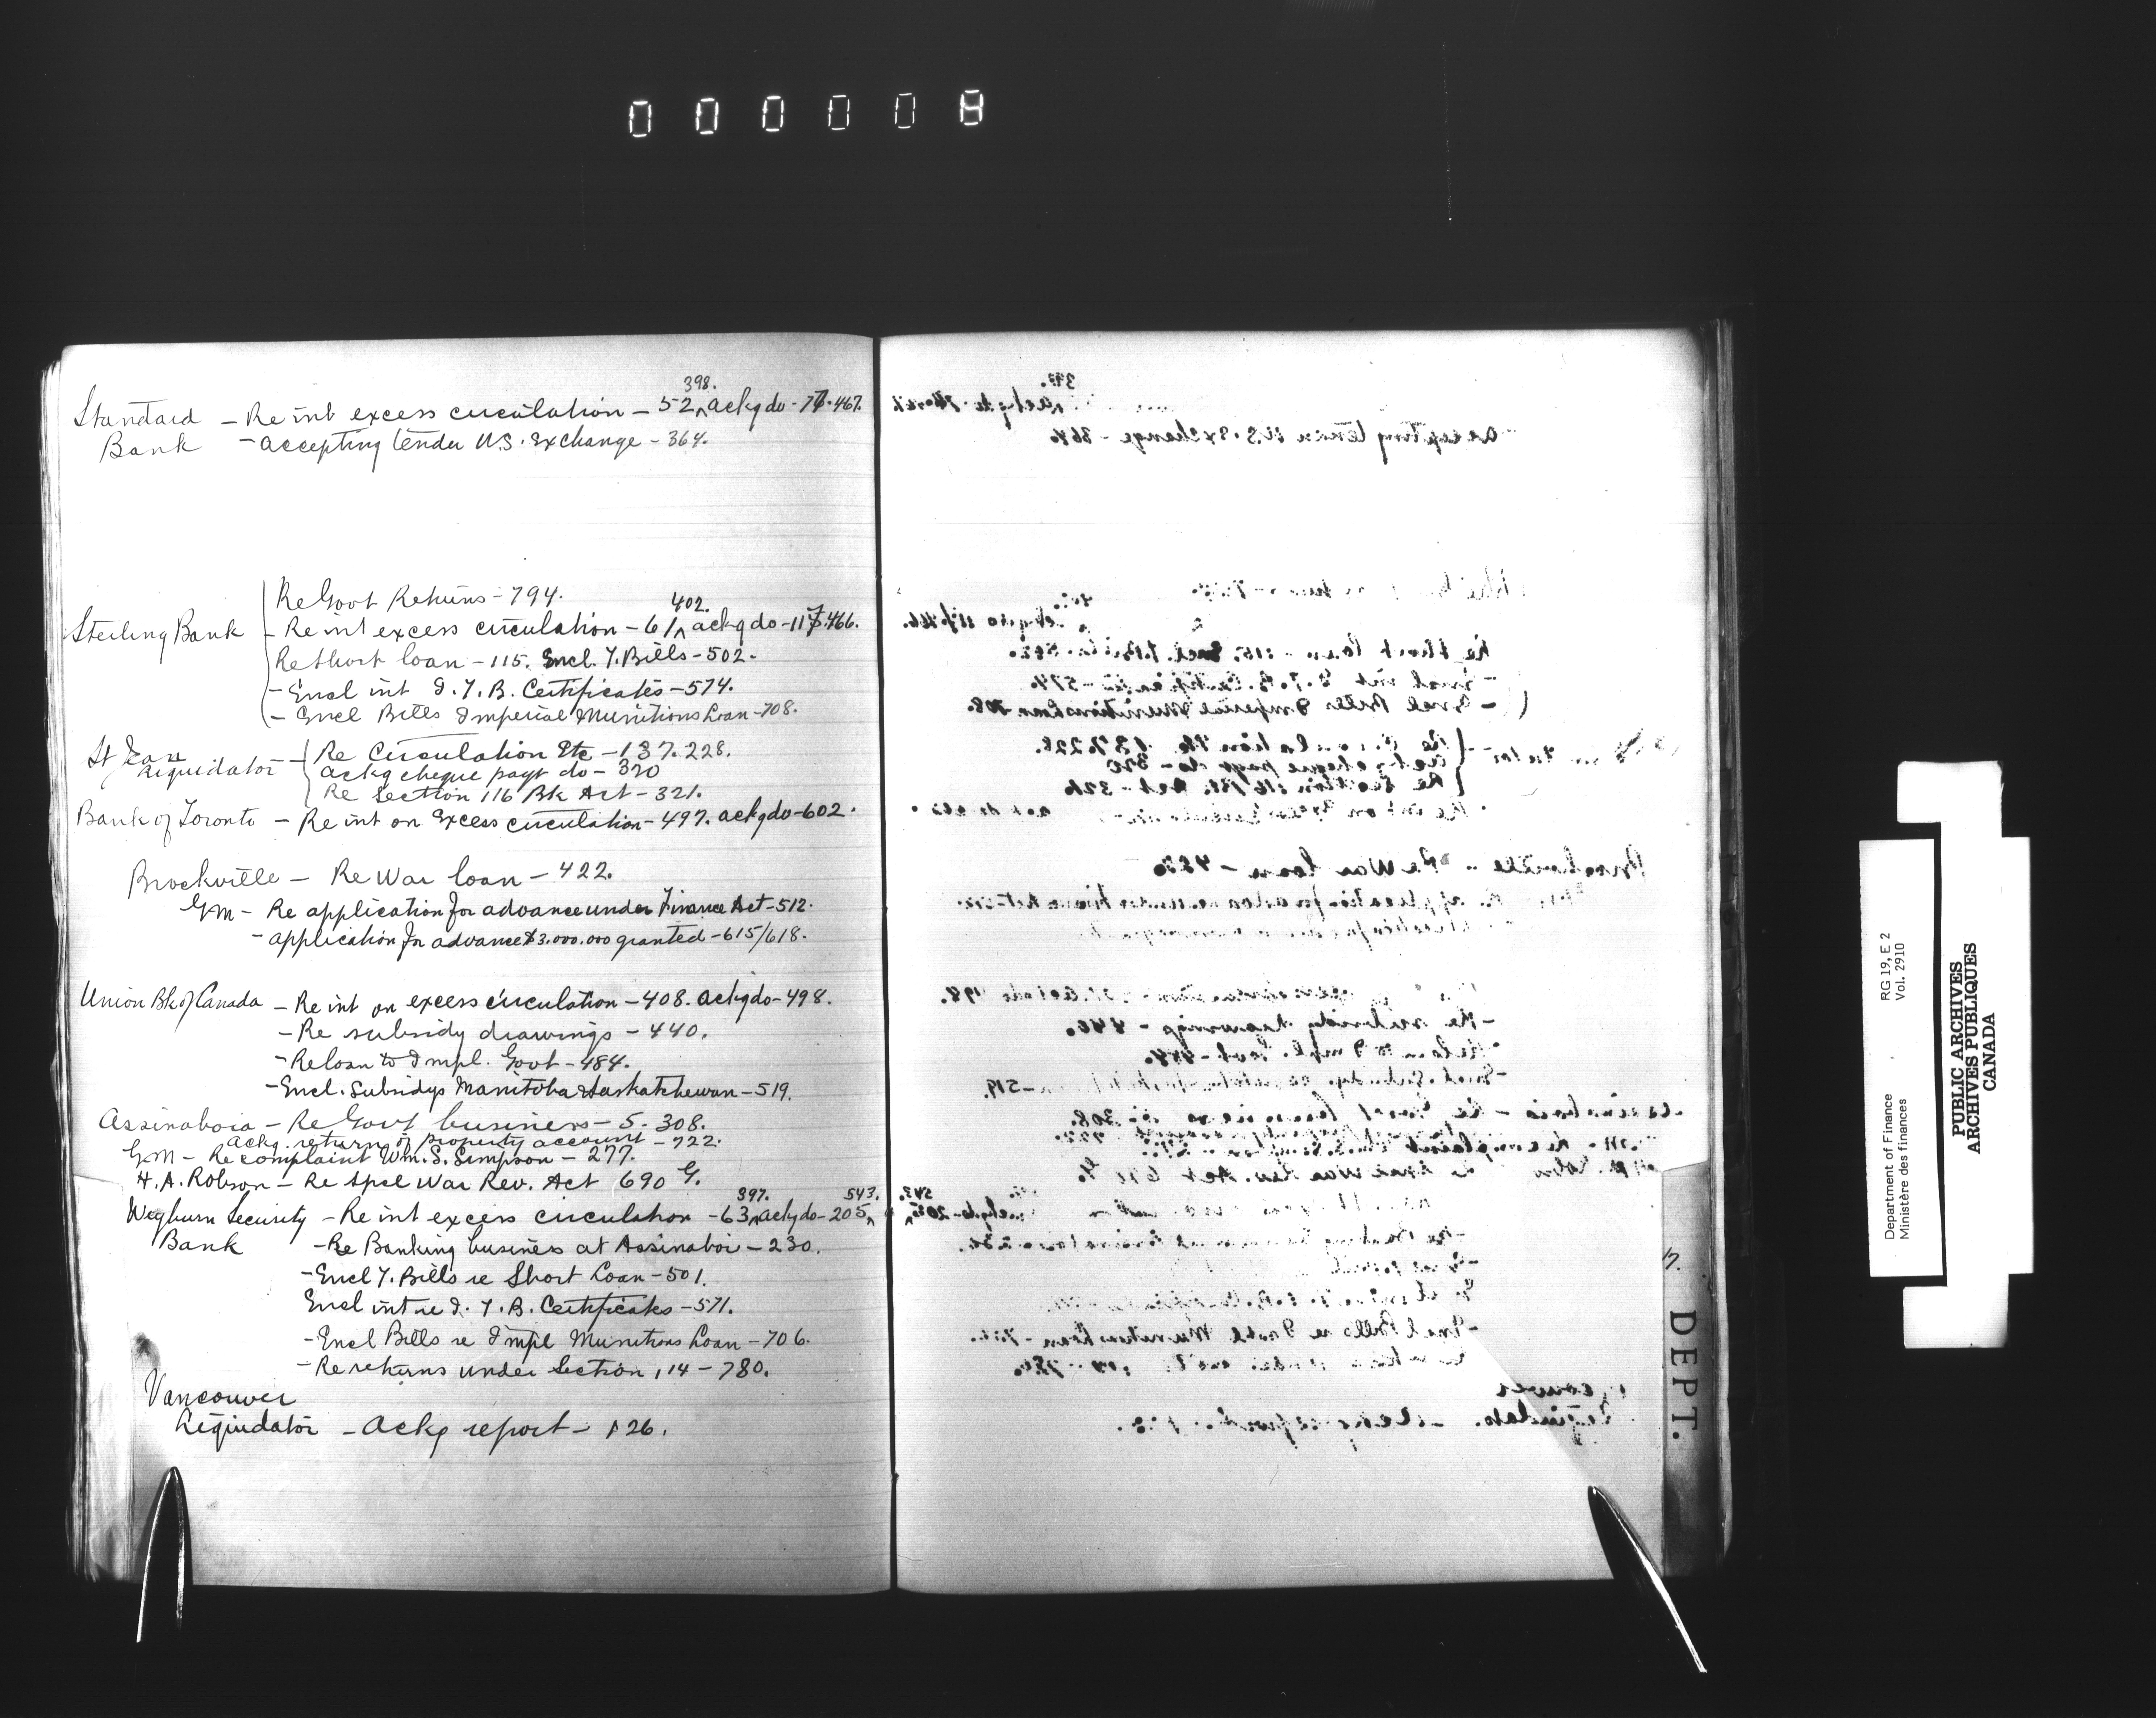 000008
398.
Standard – Re int excess circulation – 52 ‸ ackg do – 77. 467.
Bank – accepting tender U.S. Exchange – 364.
Re Govt Returns – 794.
402.
Sterling Bank – Re int excess circulation – 61 ‸ ackg do – 117. 466.
Re Short loan – 115. Encl. T. Bills – 502.
– Encl int I. T. B. Certificates – 574.
– Encl Bills Imperial Munitions Loan – 708.
St Jean – Re Circulation Etc – 137. 228.
Liquidator ackg cheque payt do – 320
Re Section 116 Bk Act – 321.
Bank of Toronto – Re int on Excess circulation – 497. ackg do – 602.
Brockville – Re War loan – 422.
GM – Re application for advance under Finance Act – 512.
– application for advance $3.000.000 granted – 615/618.
Union Bk of Canada – Re int on excess circulation – 408. ackg do – 498.
– Re subsidy drawings – 440.
– Re loan to Impl. Govt – 484.
– Encl. Subsidys Manitoba & Saskatchewan – 519.
Assinaboia – Re Govt business – 5. 308.
ackg. return of property account – 722.
GM – Re complaint Wm. S. Simpson – 277.
H. A. Robson – Re Spcl War Rev. Act 690 G.
397. 543.
Weyburn Security – Re int excess circulation – 63 ‸ ackg do – 205 ‸
Bank – Re Banking business at Assinaboi – 230.
– Encl T. Bills re Short Loan – 501.
Encl int re I. T. B. Certificates – 571.
– Encl Bills re Impl Munitions Loan – 706.
– Re returns under Section 114 – 780.
Vancouver
Liquidator – Ackg report – 126.
DEPT.
Department of Finance
Ministère des finances
RG 19, E 2
Vol. 2910
PUBLIC ARCHIVES
ARCHIVES PUBLIQUES
CANADA